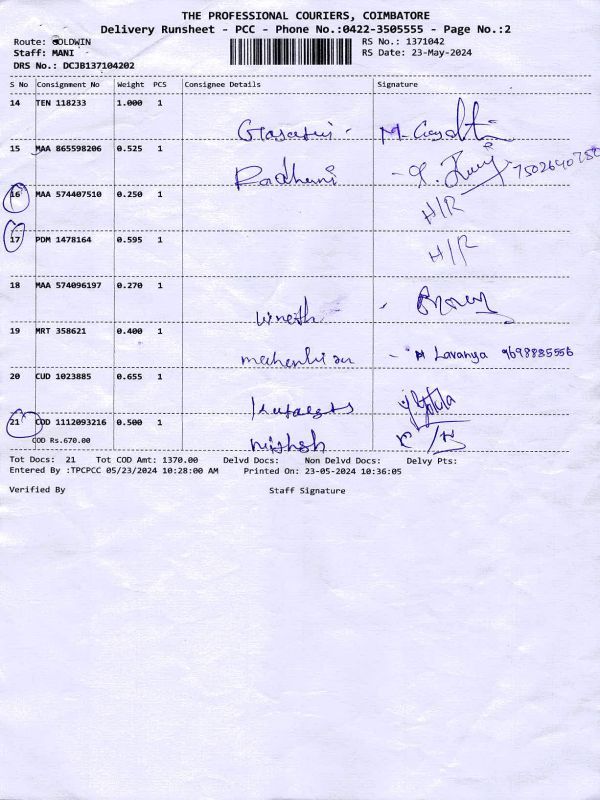 THE PROFESSIONAL COURIERS, COIMBATORE
Delivery Runsheet - PCC - Phone No.:0422-3505555 - Page No.:2
Route: GOLDWIN RS No.: 1371042
Staff: MANI RS Date: 23-May-2024
DRS No.: DCJB137104202
S No Consignment No Weight PCS Consignee Details Signature
14 TEN 118233 1.000 1
15 MAA 865598206 0.525 1
Radhani 7502640750
16 MAA 574407510 0.250 1 H/R
17 PDM 1478164 0.595 1
H/R
18 MAA 574096197 0.270 1
Vineth
19 MRT 358621 0.400 1
M Lavanya 9698885556
20 CUD 1023885 0.655 1
21 COD 1112093216 0.500 1
COD Rs.670.00
Tot Docs: 21 Tot COD Amt: 1370.00 Delvd Docs: Non Delvd Docs: Delvy Pts:
Entered By :TPCPCC 05/23/2024 10:28:00 AM Printed On: 23-05-2024 10:36:05
Verified By Staff Signature